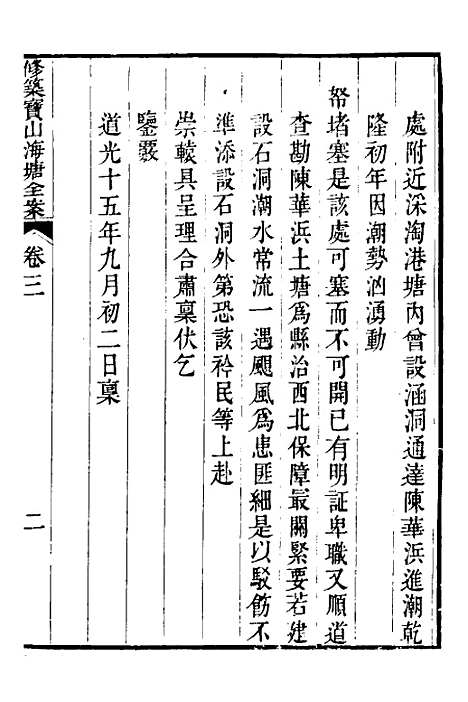 處附近采淘港塘內曾設涵洞通達陳華浜進潮乾
隆初年因潮勢洶湧動
帑堵塞是該處可塞而不可開已有明証卑職又順道
查勘陳華浜土塘爲縣治西北保障最關緊要若建
設石洞潮水常流一遇颶風爲患匪細是以駁飭不
準添設石洞外第恐該衿民等上赴
崇轅具呈理合肅稟伏乞
鑒覈
道光十五年九月初二日稟
修築寶山海塘全案
卷三
二